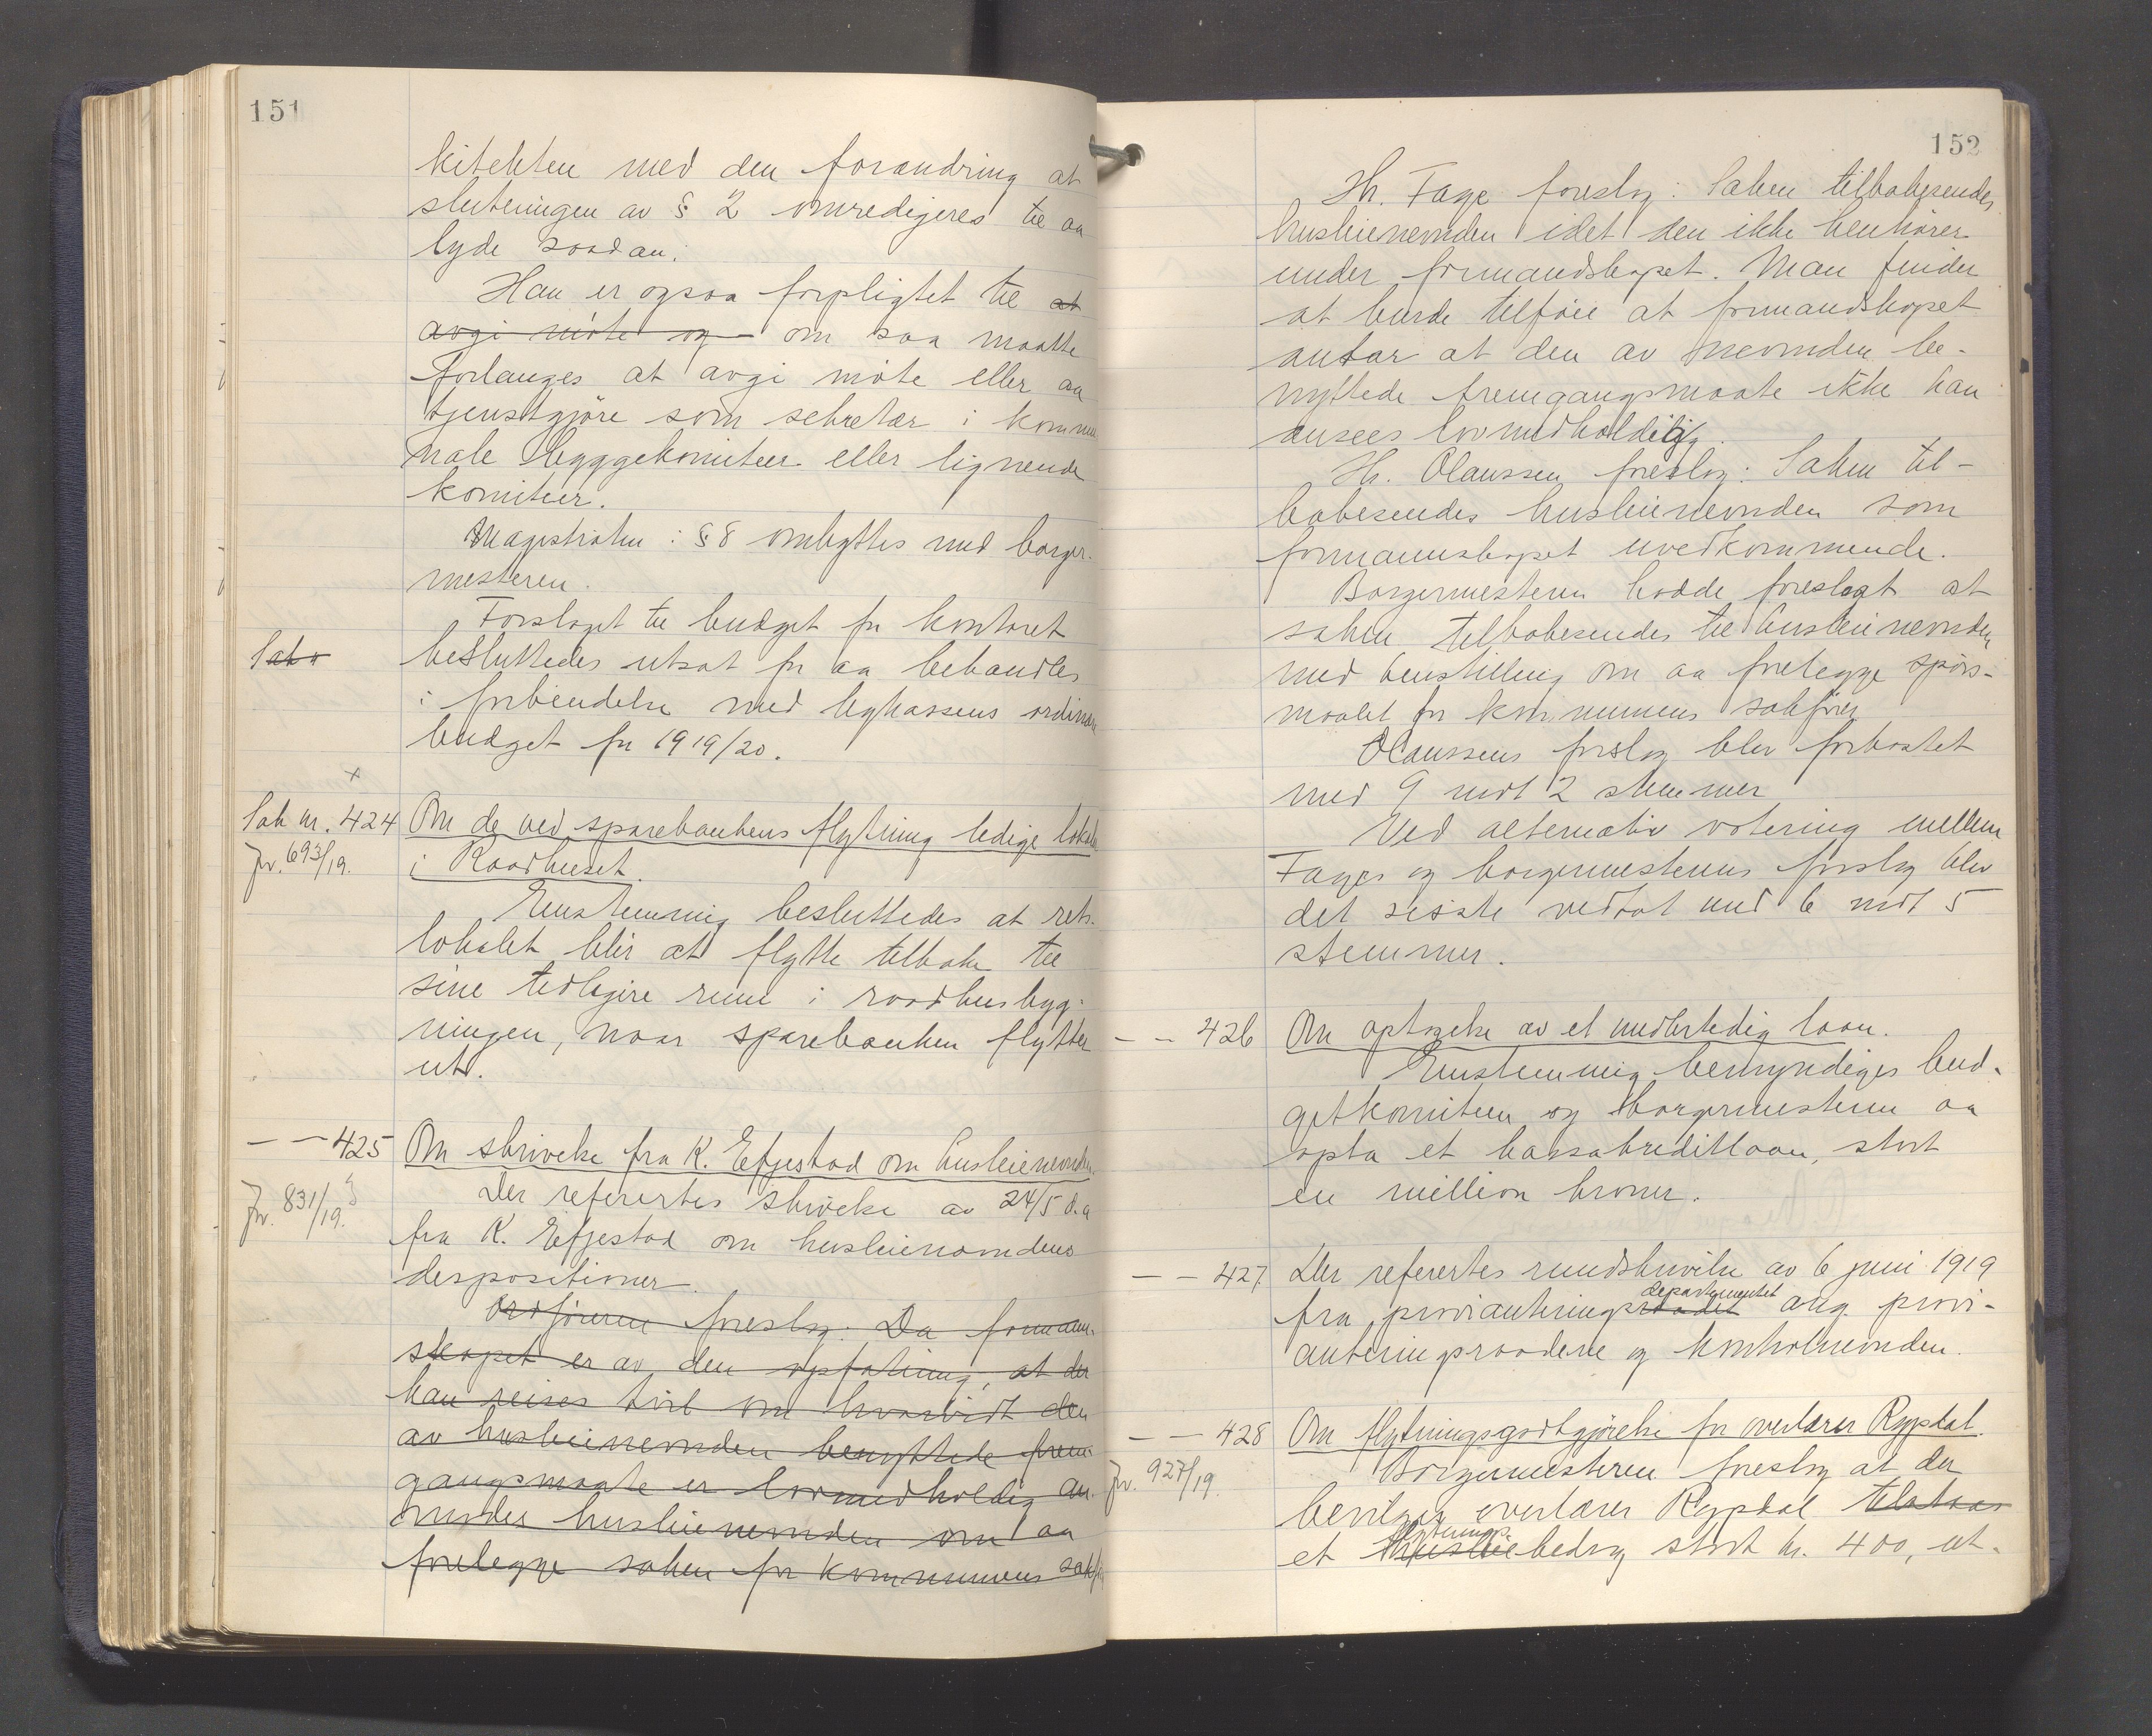 151
kitekten med den forandring at
slutningen av § 2 omredigeres til aa
lyde saadan:
Han er ogsaa forpligtet til at
avgi møte og om saa maatte
forlanges at avgi møte eller aa
tjenstgjøre som sekretær i kommu
nale byggekomiteer eller lignende
komiteer.
Magistraten i § 8 ombyttes med borger-
mesteren.
Forslaget til budget for kontoret
Sak
besluttedes utsat for aa behandles
i forbindelse med bykassens ordinære
budget for 1919/20.
Sak nr. 424 Om de ved sparebankens flytning ledige lokaler
Jr. 693/19. i Raadhuset.
Enstemmig besluttedes at rets-
lokalet blir at flytte tilbake til
sine tidligere rum i raadhusbyg-
ningen, naar sparebanken flytter
ut.
— — 425 Om skrivelse fra K. Efjestad om husleienevnden.
Jr. 831/19. Der refertes skrivelse av 24/5 d.a
fra K. Efjestad om husleienevndens
despositioner.
Ordføreren foreslog: Da formann-
skapet er av den opfatning, at der
kan reises tvil om hvorvidt den
av husleienevnden benyttede frem-
gangsmaate er lovmedholdig an-
modes husleienevnden om aa
forelegge saken for kommunens sakfører
152
Hr. Fage foreslog: Saken tilbakesendes
husleienevnden idet den ikke henhører
under formandskapet. Man finder
at burde tilføie at formandskapet
antar at den av nevnden be-
nyttede fremgangsmaate ikke kan
ansees lovmedholdig.
Hr. Olaussen foreslog: Saken til-
bakesendes husleienevnden som
formannskapet uvedkommende.
Borgermesteren hadde foreslagt at
saken tilbakesendes til husleienevnden
med henstilling om aa forelegge spørs-
maalet for kommunens sakfører
Olaussens forslag blev forkastet
med 9 mot 2 stemmer
Ved alternativ votering mellem
Fages og borgermesterens forslag blev
det sisste vedtat med 6 mot 5
stemmer.
— — 426 Om optagelse av et midlertidig laan.
Enstemmig bemyndiges bud-
getkomiteen og borgermesteren aa
opta et kassakreditlaan, stort
en million kroner.
— — 427 Der refertes rundskrivelse av 6 juni 1919
departementet
fra provianteringsraadet ang. provi-
anteringsraadene og kontrolnevnden.
— — 428 Om flytningsgodtgjørelse for overlærer Rypdal.
Jr. 927/19. Borgermesteren foreslog at der
bevilges overlærer Rypdal tilstaaes
flytnings
et husleiebedrag stort kr. 400, ut-